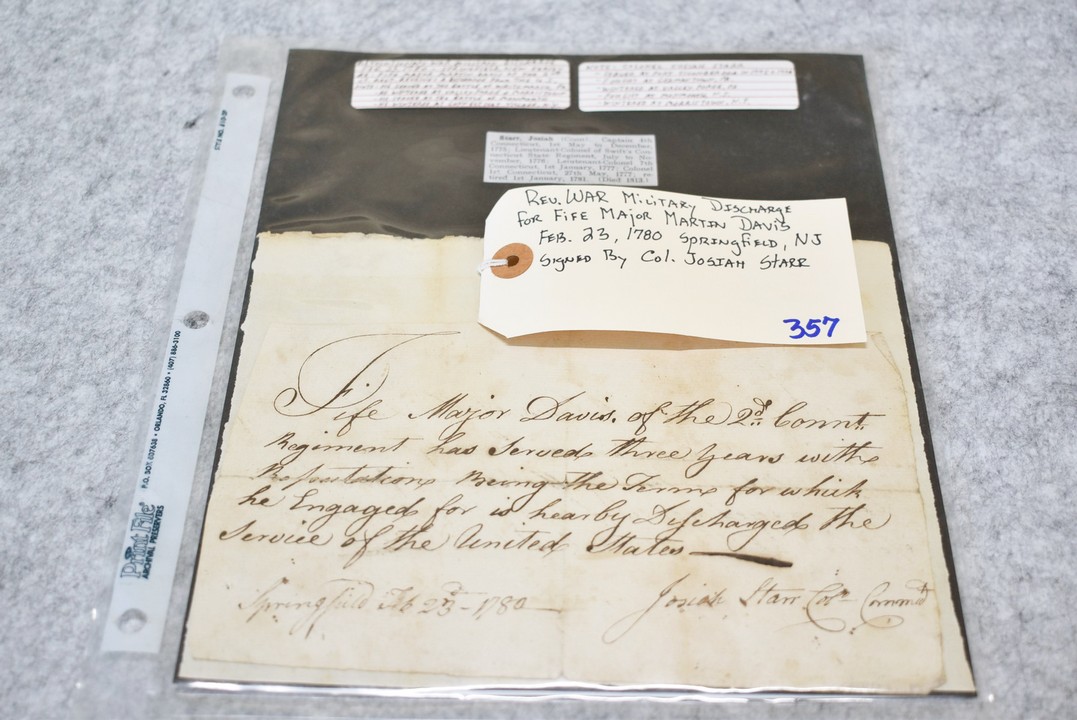 SERVED AT
WINTERED AT VALLEY FORGE, PA
WINTERED AT MORRISTOWN, N.J.
Starr, Josiah (Conn). Captain 4th
Connecticut, 1st May to December,
1775; Lieutenant-Colonel of Swift's Con-
necticut State Regiment, July to No-
vember, 1776; Lieutenant-Colonel 7th
Connecticut, 1st January, 1777; Colonel
1st Connecticut, 27th May, 1777; re-
tired 1st January, 1781. (Died 1813.)
REV. WAR MILITARY DISCHARGE
FOR FIFE MAJOR MARTIN DAVIS
FEB. 23, 1780 SPRINGFIELD, NJ
SIGNED BY COL. JOSIAH STARR
357
Fife Major Davis. of the 2d Connt.
Regiment has Served three Years with
Reputation Being the Term for which
he Engaged for is hearby Discharged the
Service of the United States
Springfield Feb 23d - 1780
Josiah Starr Coln Commdt
STYLE NO.
P.O. BOX 607638 • ORLANDO, FL 32860 • (407) 886-3100
Print File®
ARCHIVAL PRESERVERS